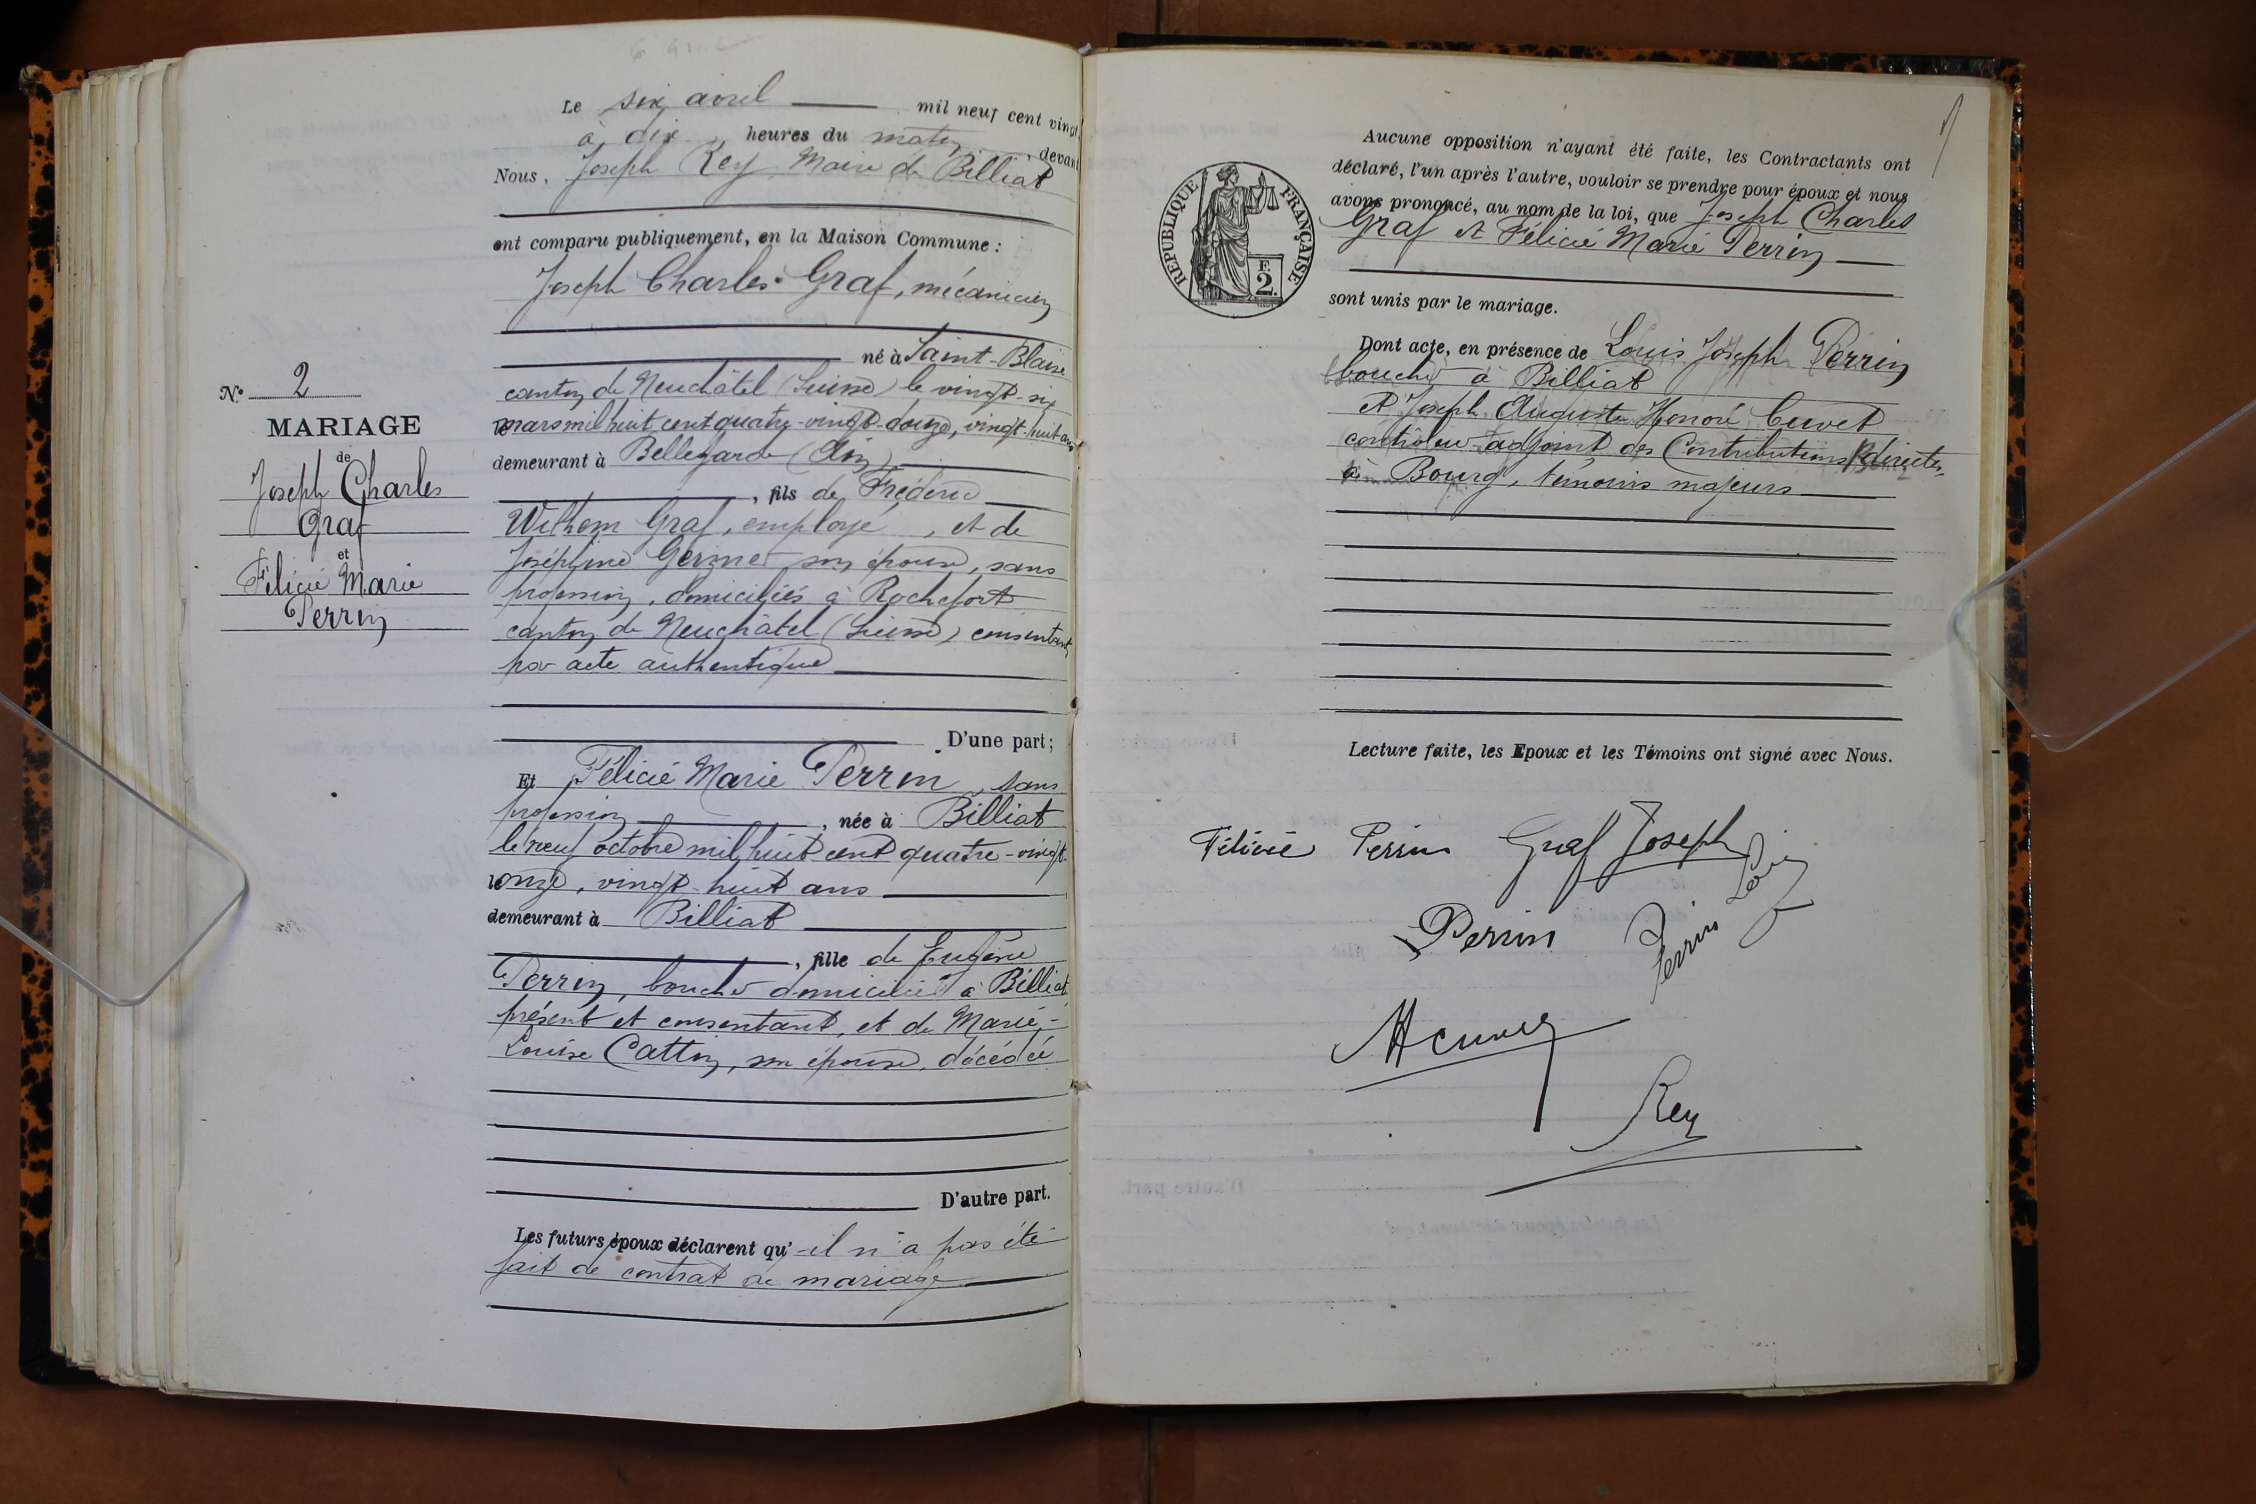 Le six avril mil neuf cent vingt,
à dix heures du matin, devant
Nous, Joseph Rey Maire de Billiat
ont comparu publiquement, en la Maison Commune :
Joseph Charles Graf, mécanicien
né à Saint-Blaise
canton de Neuchâtel (Suisse) le vingt-six
mars mil huit cent quatre-vingt-douze, vingt-huit ans
demeurant à Bellegarde (Ain)
, fils de Frédéric
Wilhem Graf, employé, et de
Joséphine son épouse, sans
profession, domiciliés à Rochefort
canton de Neuchâtel (Suisse) consentant
par acte authentique
D'une part ;
Et Félicie Marie Perrin, sans
profession, née à Billiat
le neuf octobre mil huit cent quatre-vingt-
onze, vingt-huit ans
demeurant à Billiat
, fille de Eugène
Perrin, boucher domicilié à Billiat
présent et consentant, et de Marie-
Louise Cattin, son épouse, décédée
D'autre part.
Les futurs époux déclarent qu'il n'a pas été
fait de contrat de mariage
N° 2
MARIAGE
de
Joseph Charles
Graf
et
Félicie Marie
Perrin
RÉPUBLIQUE FRANÇAISE
F.
2.
Aucune opposition n'ayant été faite, les Contractants ont
déclaré, l'un après l'autre, vouloir se prendre pour époux et nous
avons prononcé, au nom de la loi, que Joseph Charles
Graf et Félicie Marie Perrin
sont unis par le mariage.
Dont acte, en présence de Louis Joseph Perrin
boucher à Billiat
et Joseph Auguste Honoré Cuvet
contrôleur adjoint des Contributions directes
à Bourg, témoins majeurs
Lecture faite, les Epoux et les Témoins ont signé avec Nous.
Félicie Perrin Graf Joseph
Perrin Perrin Louis
Rey